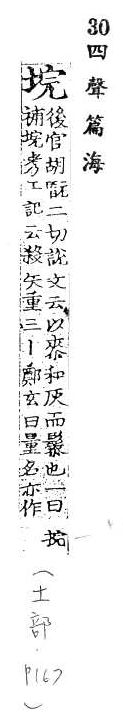 30四聲篇海
垸
後官胡玩二切說文云以桼和灰而䰍也一曰
補垸考工記云殺矢重三丨鄭玄曰量名亦作
捖
(土部.P167)